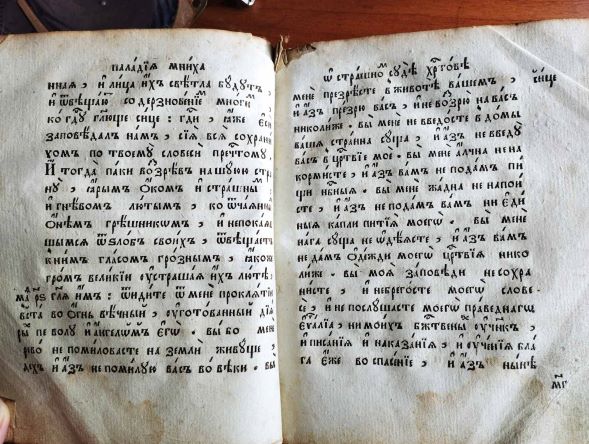 палáдїѧ мни́ха
нная , и҆ лица и҆́хъ свѣтла бꙋдꙋтъ ,
и҆ ѿвѣщаю́т со дерзновенїе многи ,
ко гдꙋ̀ глюще сице : гди , ꙗ҆же є҆си
заповѣдалъ намъ , сїѧ всѧ сохрани
хомъ по твоемꙋ словеси пречтомꙋ .
И҆ тогда паки возрѣвъ на шꙋюю стра
нꙋ , ꙗ҆рымъ ѻ҆́комъ и҆ страшны
и҆ гнѣвомъ лютымъ , ко ѿчаѧнны
Ѻ҆нѣмъ грѣшникѡмъ , и҆ непокаѧ
шымсѧ ѿ злобъ своихъ , ѿвѣщаетъ
к нимъ гласомъ грознымъ , ꙗ҆коже
громъ великїи ᲂу҆страшаѧ и҆́хъ лютѣ ,
гл҃ѧ и҆мъ : ѿидите ѿ мене проклѧтїи
во ѻ҆гнь вѣчный , ᲂу҆готованный дїѧ
волꙋ и҆ а҆нгелѡмъ є҆гѡ̀ . вы бо мене
не помиловасте на земли живꙋще ,
и҆ а҆́зъ не помилꙋю васъ во вѣки . вы
ѡ҆ страшно сꙋдѣ хр͒товѣ
мене презрѣсте в животѣ вашемъ , сице
и҆ а҆́зъ презрю васъ , и҆ не возрю на васъ
николиже . вы мене не введосте в домы
вашѧ странна сꙋща , и҆ а҆́зъ не введꙋ
васъ в цр͒твїе мое . вы мене алчна не на
кормисте , и҆ а҆́зъ вамъ не подамъ пи
щи нбныѧ . вы мене жадна не напои
сте , и҆ а҆́зъ не подамъ вамъ ни є҆ди
ныѧ капли питїѧ моегѡ̀ . вы мене
нага сꙋща не ѡ҆дѣѧсте , и҆ а҆́зъ вамъ
не дамъ ѻ҆дежди моегѡ̀ цр͒твїѧ нико
лиже . вы моѧ заповѣди не сохра
нисте , и҆ небрегосте моегѡ̀ слове
сѐ , и҆ не послꙋшасте моегѡ̀ праведнагѡ
є҆ѵ҃лїа , ни моихъ бж͒твены ᲂу҆чн҃къ ,
и҆ писанїѧ и҆ наказанїѧ , и҆ ᲂу҆ченїѧ бла
га є҆́же во спасенїе , и҆ а҆́зъ нынѣ
мг